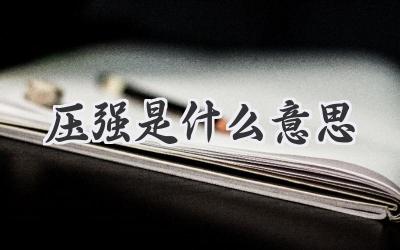 压强是什么意思